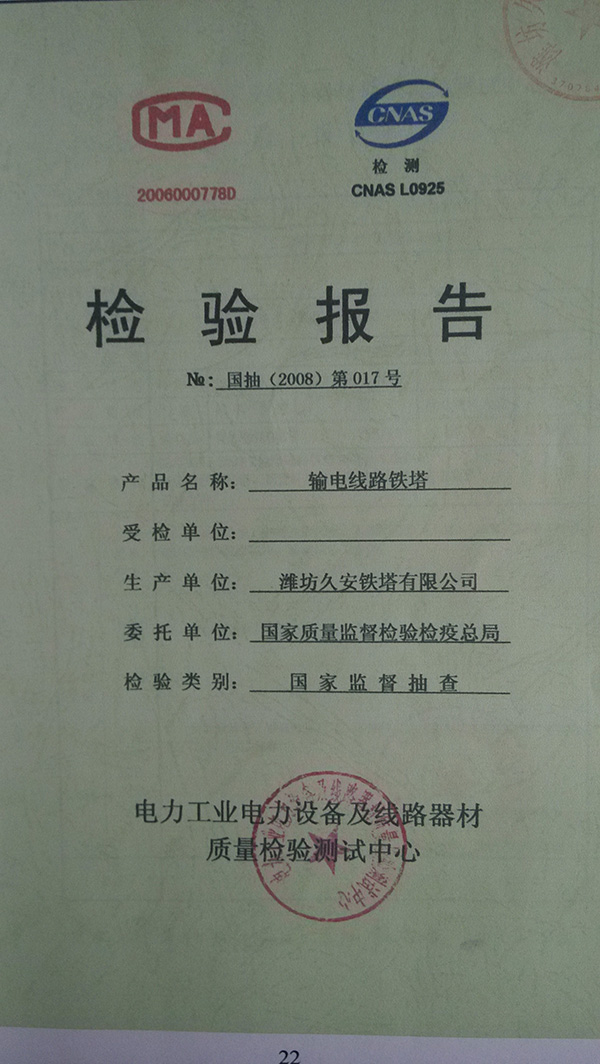 潍坊久
37078
CMA
CNAS
2006000778D
检 测
CNAS L0925
检 验 报 告
№：国抽（2008）第 017 号
产 品 名 称：输电线路铁塔
受 检 单 位：
生 产 单 位：潍坊久安铁塔有限公司
委 托 单 位：国家质量监督检验检疫总局
检 验 类 别：国 家 监 督 抽 查
电力工业电力设备及线路器材
质量检验测试中心
22